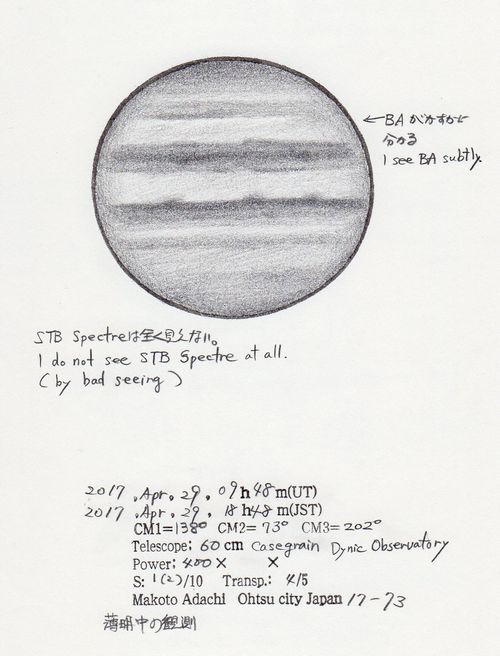 ←BAがかすかに
分かる
I see BA subtly.
STB Spectreは全く見えない。
I do not see STB Spectre at all.
(by bad seeing)
2017, Apr. 29, 09h48m(UT)
2017, Apr. 29, 18h48m(JST)
CM1=138° CM2=73° CM3=202°
Telescope; 60cm Casegrain Dynic Observatory
Power: 400× ×
S: 1(2)/10 Transp.: 4/5
Makoto Adachi Ohtsu city Japan 17-73
薄明中の観測